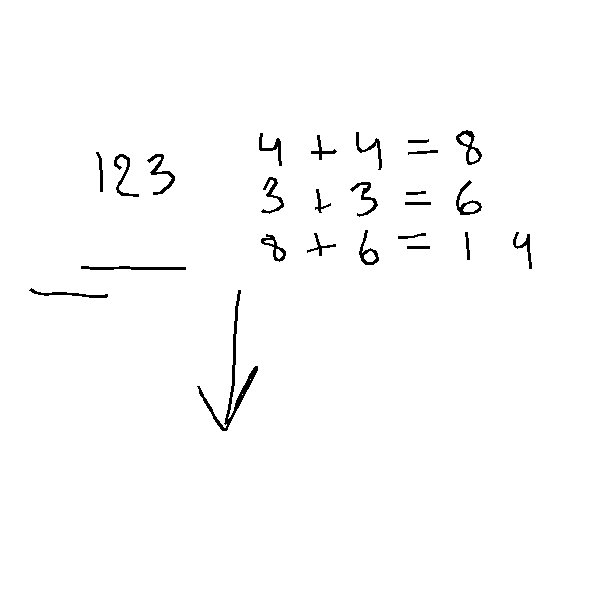 123
4 + 4 = 8
3 + 3 = 6
8 + 6 = 1 4